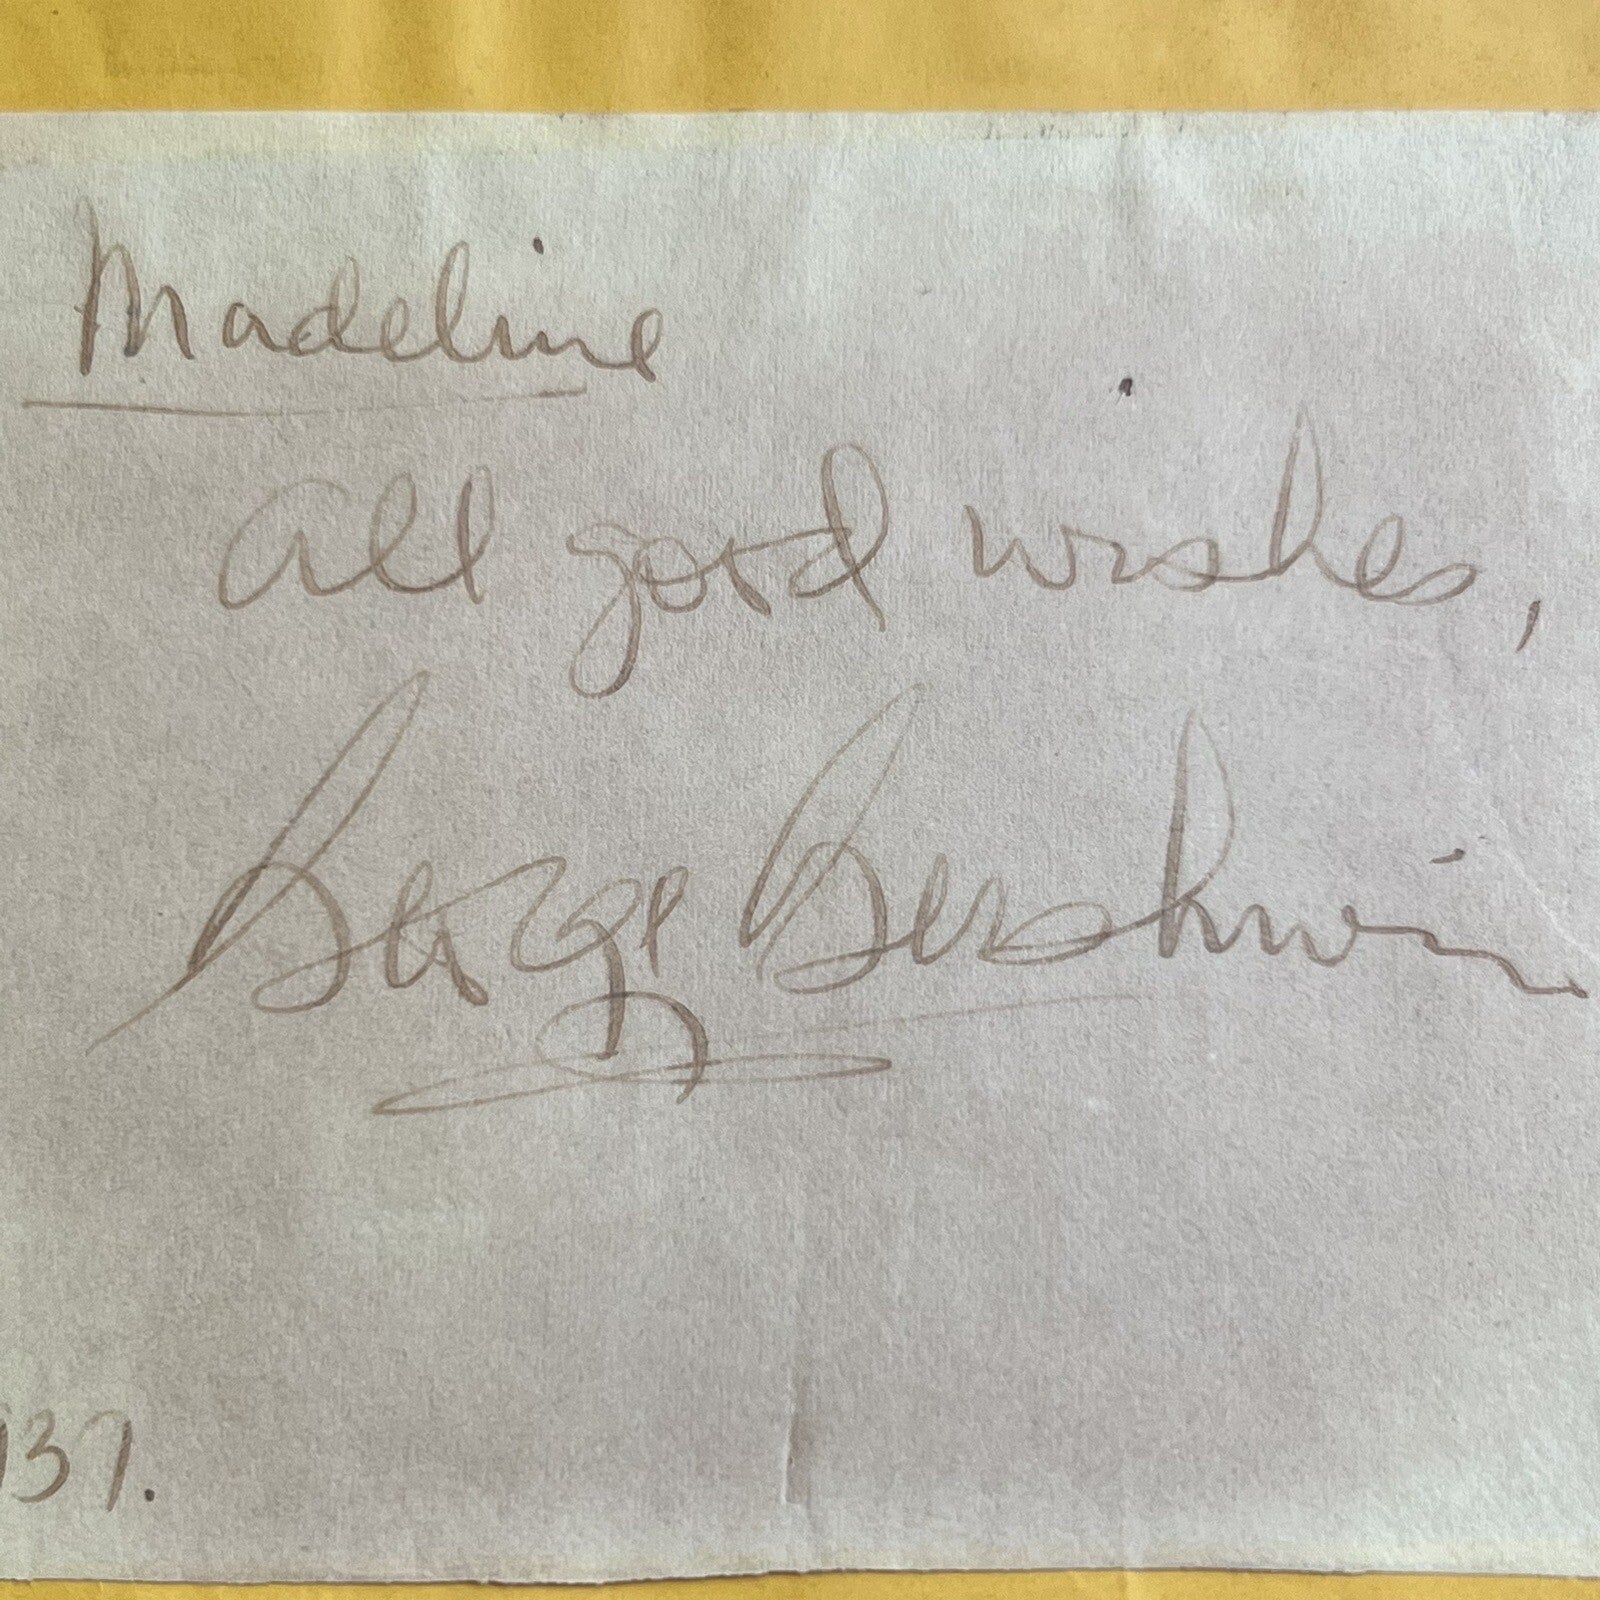 Madeline
all good wishes,
George Gershwin
937.